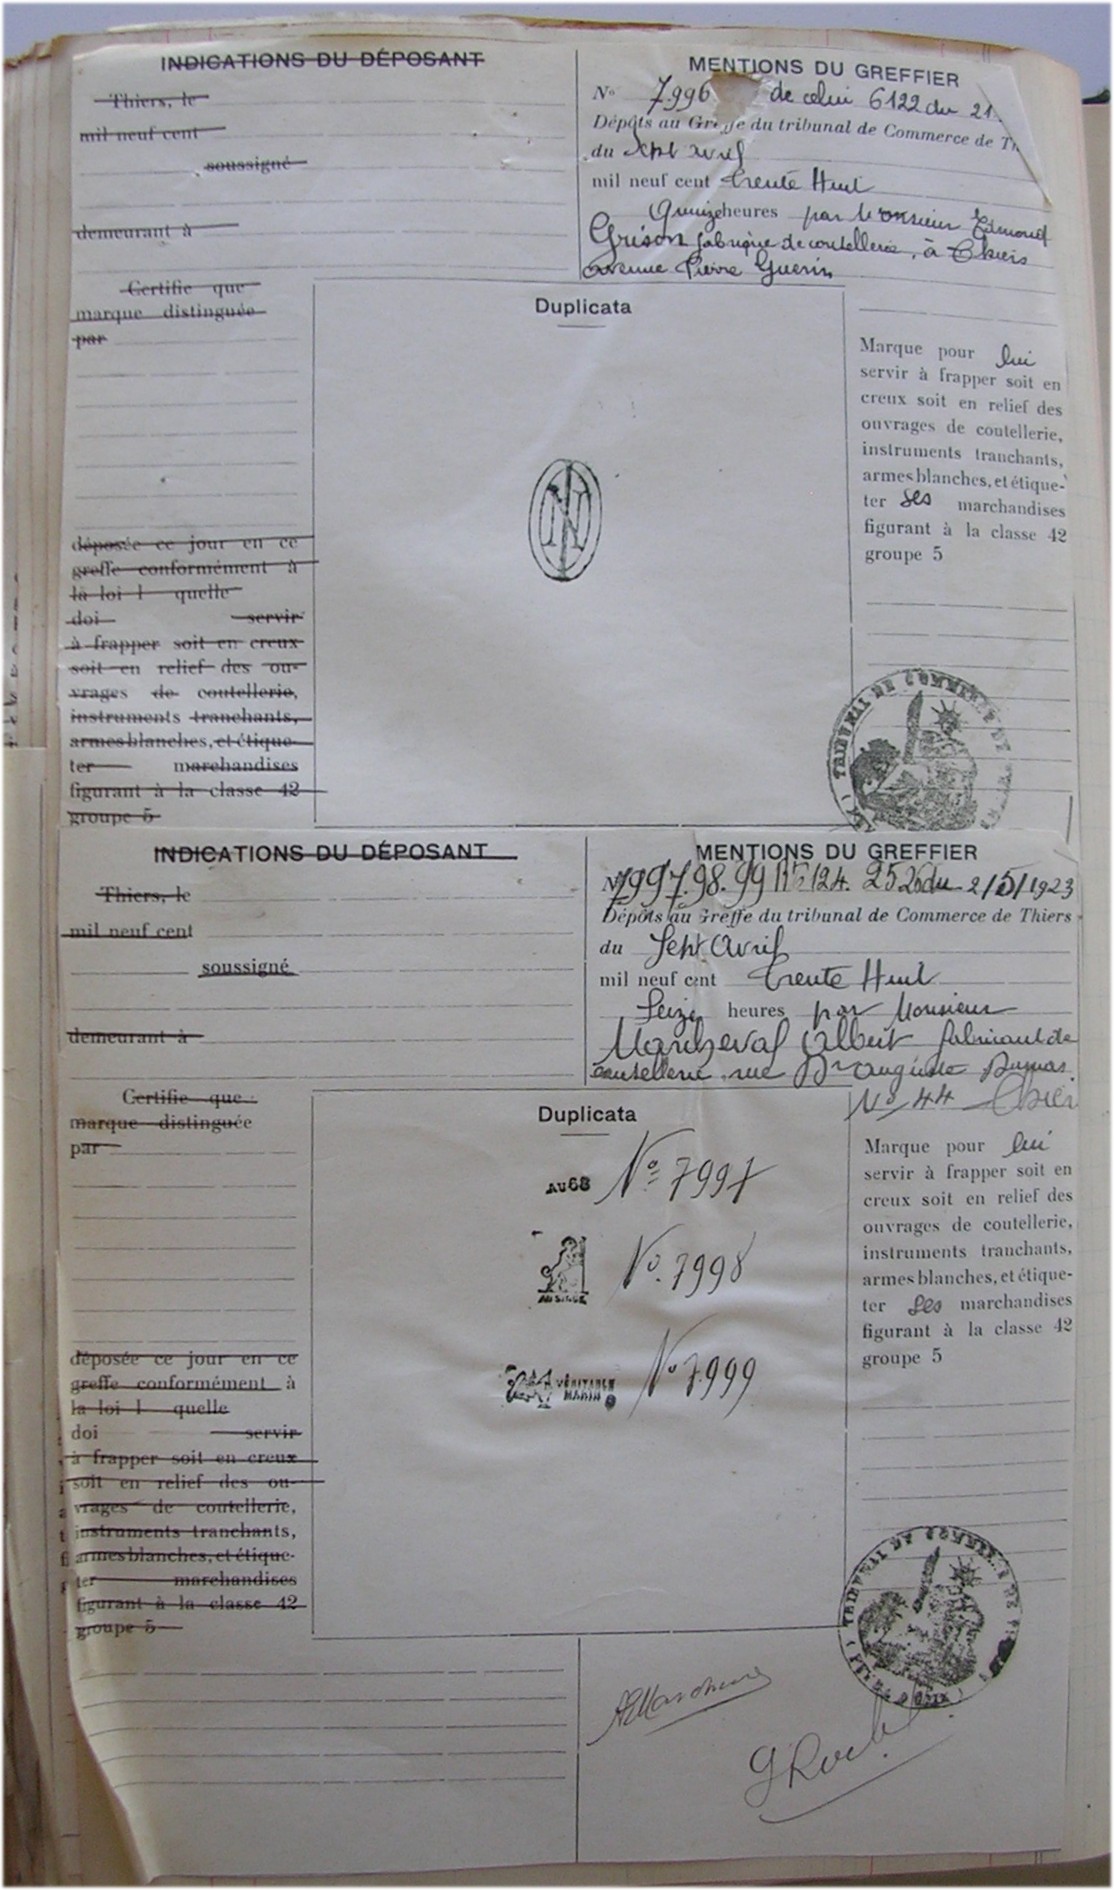 INDICATIONS DU DÉPOSANT
Thiers, le
mil neuf cent
soussigné
demeurant à
MENTIONS DU GREFFIER
No 7996 de celui 6122 du 21
Dépôts au Greffe du tribunal de Commerce de Th
du Sept Avril
mil neuf cent Trente Huit
Quinze heures par Monsieur Edmond
Grison fabrique de coutellerie, à Thiers
Avenue Pierre Guerin
Certifie que
marque distinguée
par
déposée ce jour en ce
greffe conformément à
la loi l quelle
doi servir
à frapper soit en creux
soit en relief des ou-
vrages de coutellerie,
instruments tranchants,
armes blanches, et étique-
ter marchandises
figurant à la classe 42
groupe 5
Duplicata
Marque pour lui
servir à frapper soit en
creux soit en relief des
ouvrages de coutellerie,
instruments tranchants,
armes blanches, et étique-
ter ses marchandises
figurant à la classe 42
groupe 5
TRIBUNAL DE COMMERCE DE
INDICATIONS DU DÉPOSANT
Thiers, le
mil neuf cent
soussigné
demeurant à
MENTIONS DU GREFFIER
No 7997.98.99 du 2/5/1923
Dépôts au Greffe du tribunal de Commerce de Thiers
du Sept Avril
mil neuf cent Trente Huit
Seize heures par Monsieur
Marcheval Albert fabricant de
coutellerie rue Dr Auguste Dumas
No 44 Thiers
Certifie que
marque distinguée
par
déposée ce jour en ce
greffe conformément à
la loi l quelle
doi servir
à frapper soit en creux
soit en relief des ou-
vrages de coutellerie,
instruments tranchants,
armes blanches, et étique-
ter marchandises
figurant à la classe 42
groupe 5
Duplicata
AU68 No 7997
No 7998
VÉRITABLE
MARIN No 7999
Marque pour lui
servir à frapper soit en
creux soit en relief des
ouvrages de coutellerie,
instruments tranchants,
armes blanches, et étique-
ter ses marchandises
figurant à la classe 42
groupe 5
TRIBUNAL DU COMMERCE DE